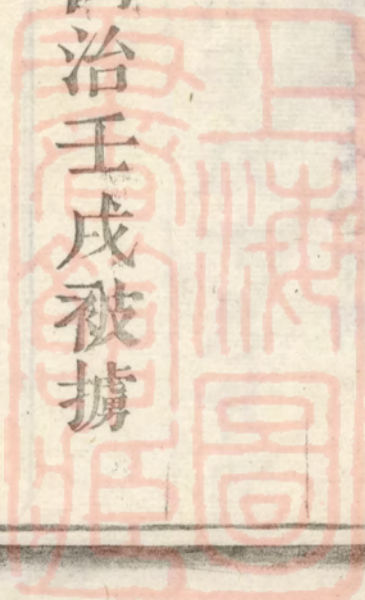 同治壬戌被擄
上海圖
書館藏